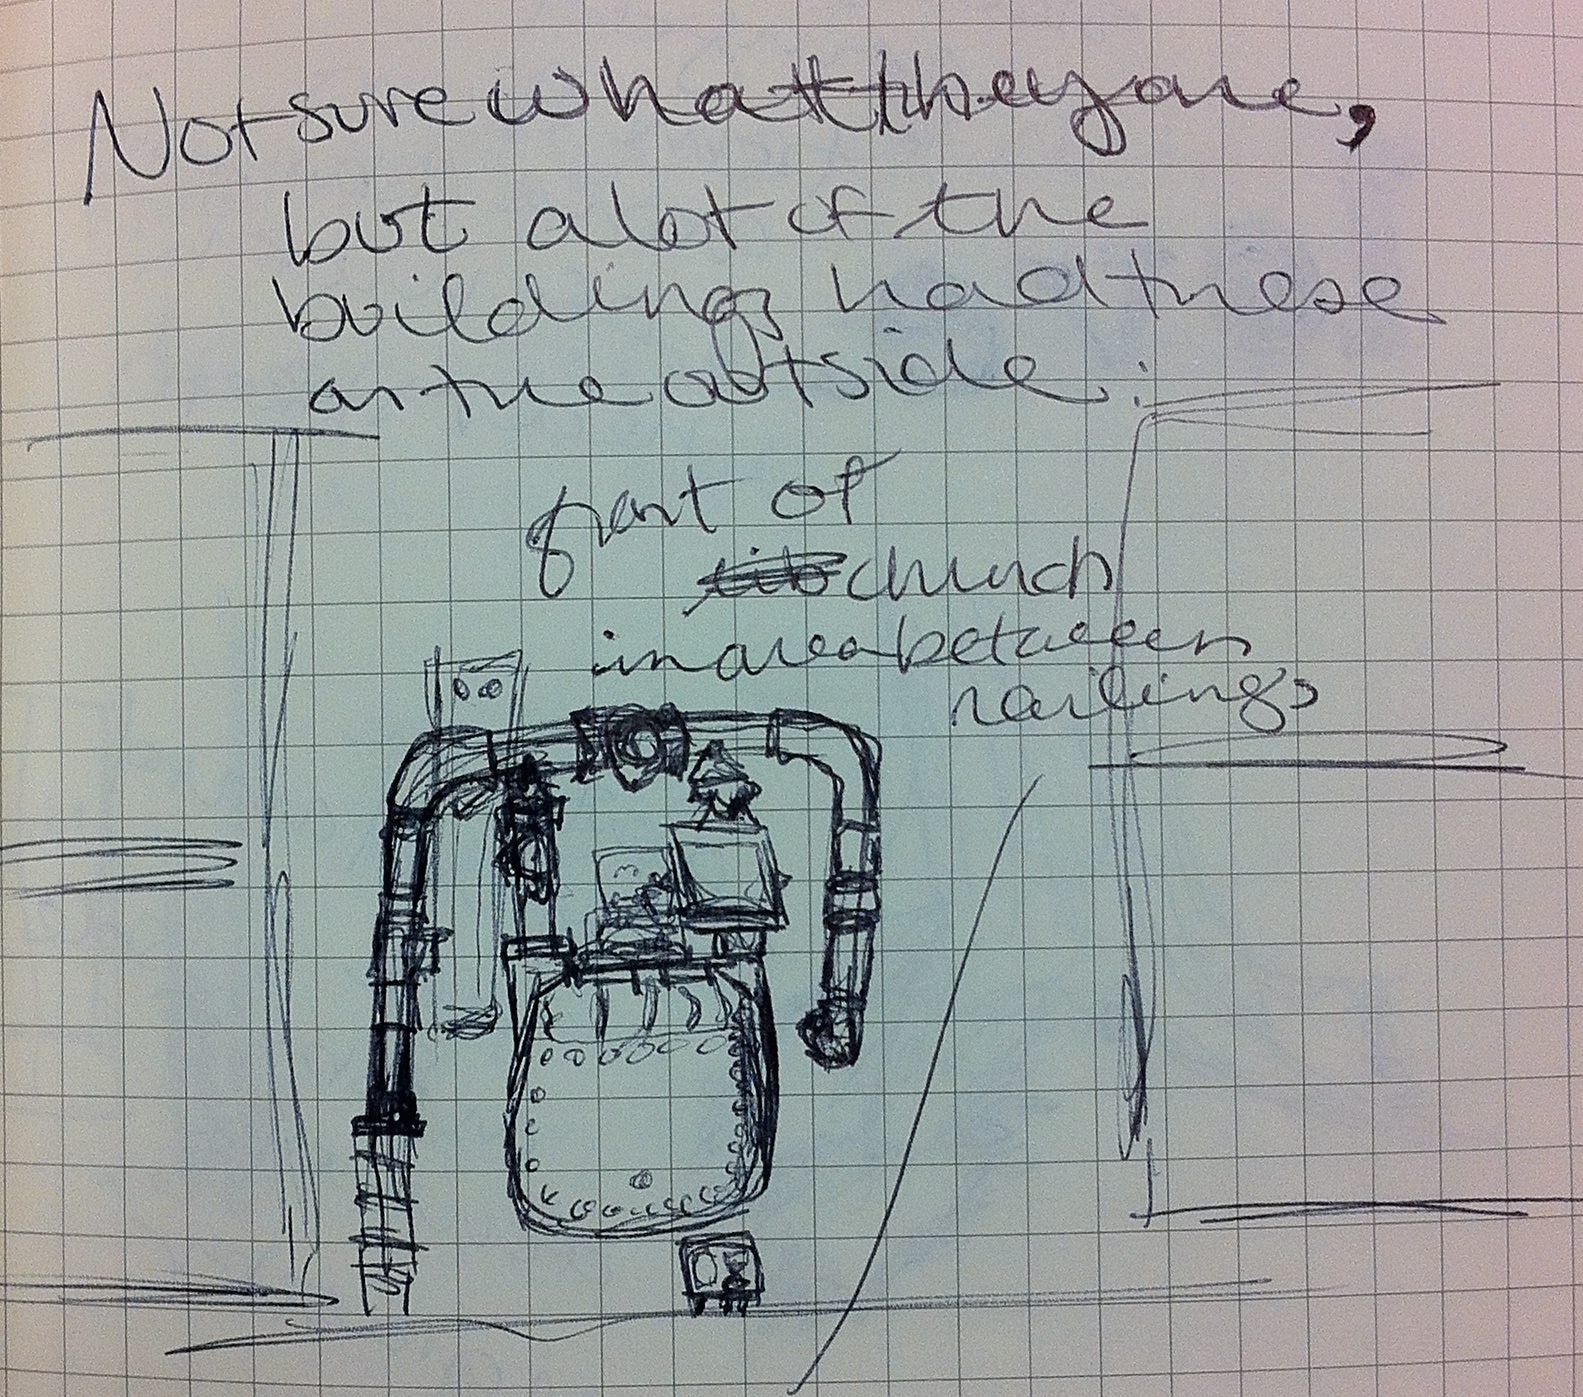 Not sure what they are,
but a lot of the
buildings had these
on the outside.
front of
church
in area between
railings